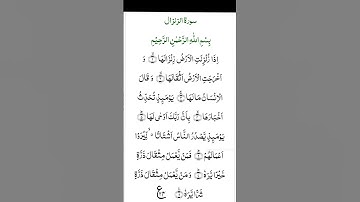 سورة الزلزال
بِسْمِ اللهِ الرَّحْمٰنِ الرَّحِيْمِ
اِذَا زُلْزِلَتِ الْاَرْضُ زِلْزَالَهَا ۙ وَ
اَخْرَجَتِ الْاَرْضُ اَثْقَالَهَا ۙ وَ قَالَ
الْاِنْسَانُ مَا لَهَا ۚ يَوْمَىِٕذٍ تُحَدِّثُ
اَخْبَارَهَا ۙ بِاَنَّ رَبَّكَ اَوْحٰى لَهَا ؕ
يَوْمَىِٕذٍ يَّصْدُرُ النَّاسُ اَشْتَاتًا ۙ۬ لِّيُرَوْا
اَعْمَالَهُمْ ؕ فَمَنْ يَّعْمَلْ مِثْقَالَ ذَرَّةٍ
خَيْرًا يَّرَهٗ ؕ وَ مَنْ يَّعْمَلْ مِثْقَالَ ذَرَّةٍ
شَرًّا يَّرَهٗ